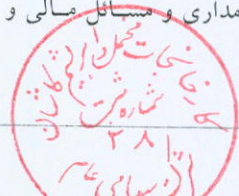 مداری و مسائل مالی و
کارخانجات مخمل و ابریشم کاشان
شماره ثبت
۲۸۱
سهامی عام